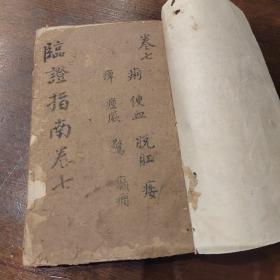 卷七
痢 便血 脫肛 痿
痺 痙厥 驚 癲癇
臨證指南卷七